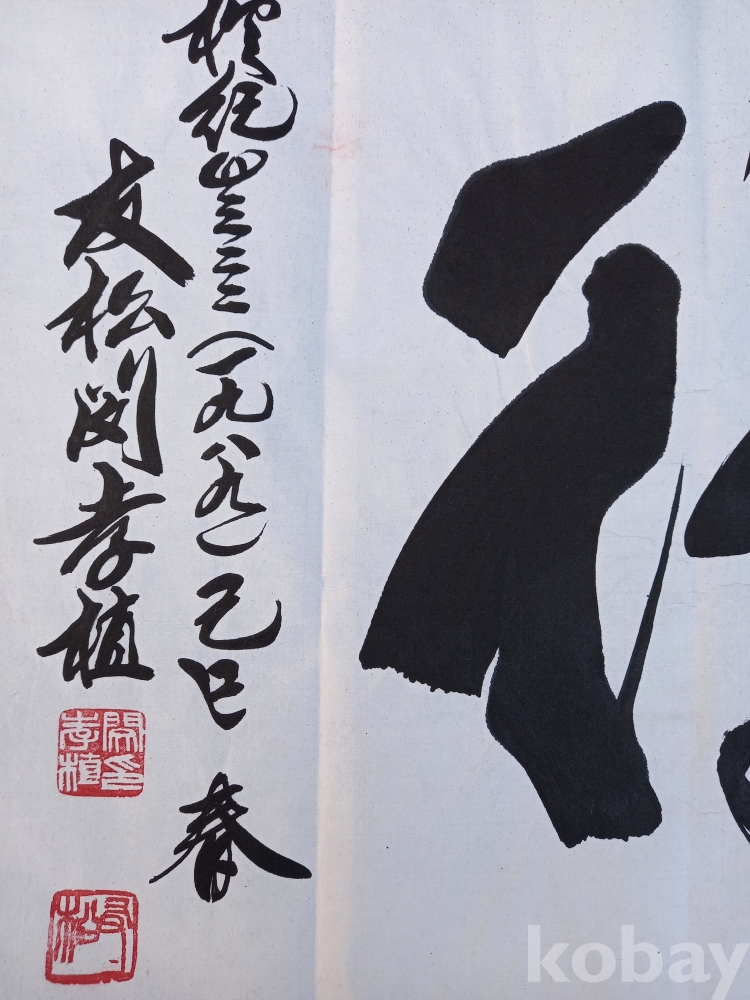 檀紀四三二二(一九八九)己巳 春
友松閔孝植
閔印
孝植
友松
kobay